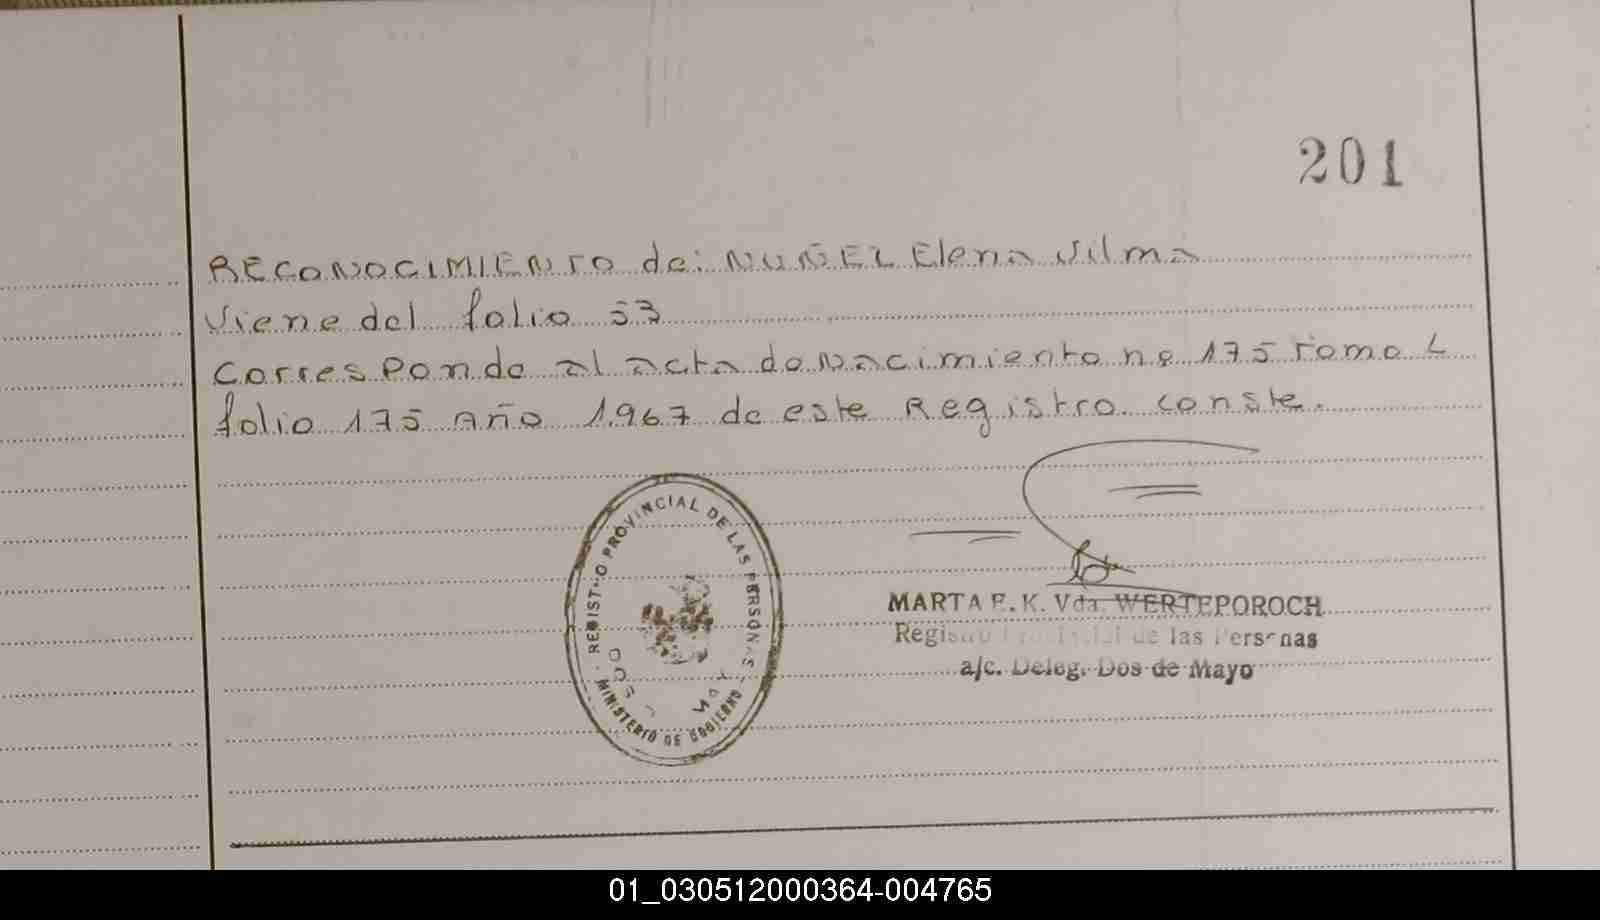 201
RECONOCIMIENTO de: NUÑEZ Elena Vilma
Viene del folio 53
Corresponde al acta de nacimiento nº 175 Tomo L
folio 175 Año 1.967 de este Registro. conste.
REGISTRO PROVINCIAL DE LAS PERSONAS
DOS DE MAYO
MINISTERIO DE GOBIERNO
MARTA E. K. Vda. WERTEPOROCH
Registro Provincial de las Personas
a/c. Deleg. Dos de Mayo
01_030512000364-004765